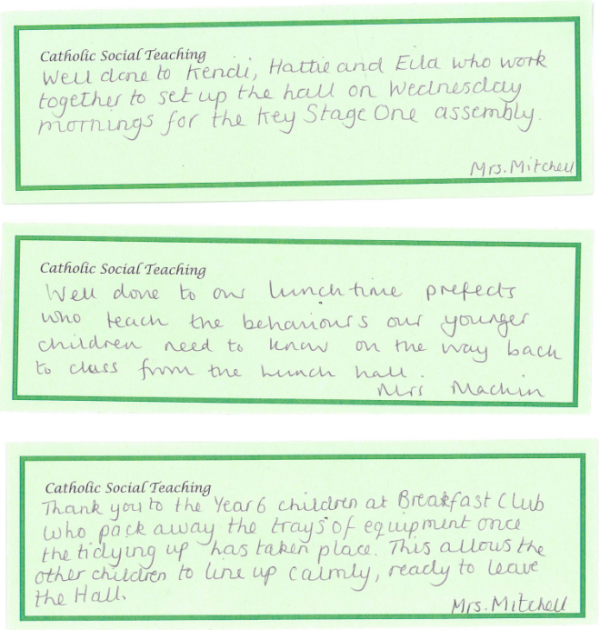 Catholic Social Teaching
Well done to Kendi, Hattie and Eila who work
together to set up the hall on Wednesday
mornings for the Key Stage One assembly.
Mrs. Mitchell
Catholic Social Teaching
Well done to our lunchtime prefects
who teach the behaviours our younger
children need to know on the way back
to class from the lunch hall.
Mrs Machin
Catholic Social Teaching
Thank you to the Year 6 children at Breakfast Club
who pack away the trays of equipment once
the tidying up has taken place. This allows the
other children to line up calmly, ready to leave
the Hall.
Mrs. Mitchell